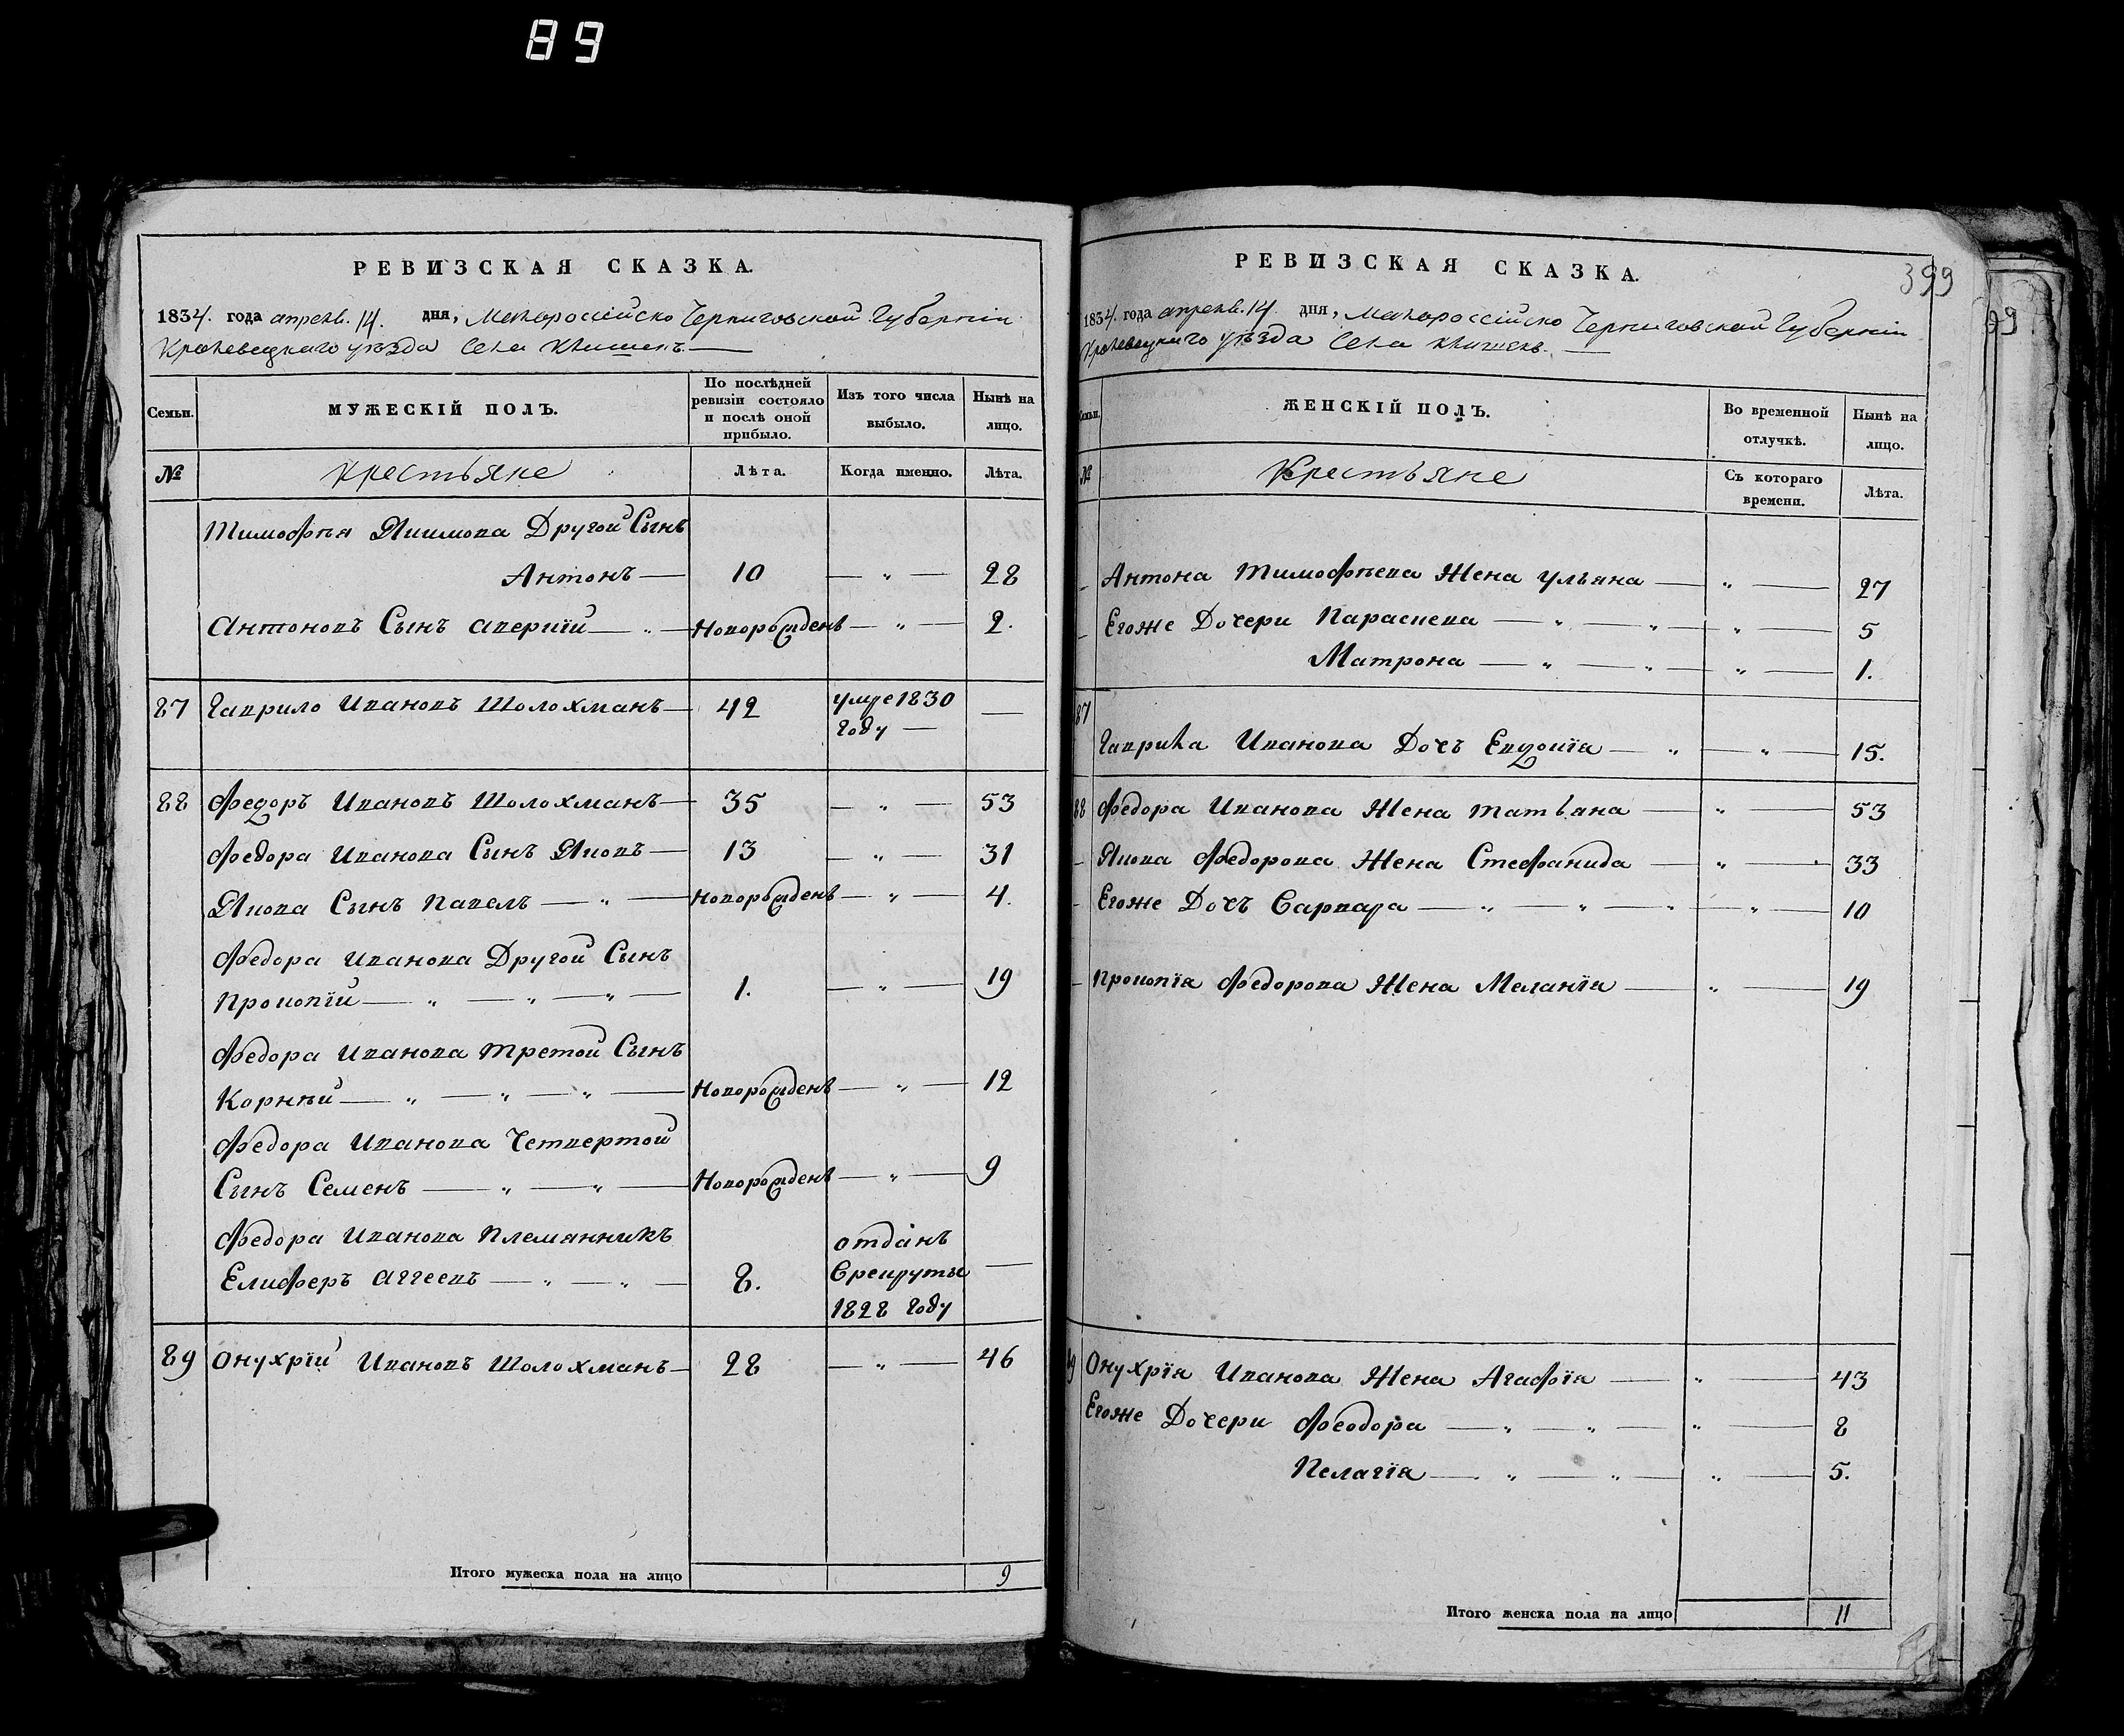 89
РЕВИЗСКАЯ СКАЗКА.
1834. года апреля. 14. дня, Малороссійско Черниговской Губерніи
Кролевецкаго уѣзда Села Клишекъ
Семьи.
МУЖЕСКІЙ ПОЛЪ.
По послѣдней ревизіи состояло и послѣ оной прибыло.
Изъ того числа выбыло.
Нынѣ на лицо.
№
Крестьяне
Лѣта.
Когда именно.
Лѣта.
Тимофѣя Якимова Другой Сынъ
Антонъ — 10 — „ — 28
Антоновъ Сынъ Аверкій — „ — Новорожденъ — „ — 2.
87 Гаврило Ивановъ Шолохманъ — 42 умре 1830 —
году —
88 Федоръ Ивановъ Шолохманъ — 35 — „ — 53
Федора Иванова Сынъ Яковъ — 13 — „ — 31
Якова Сынъ Павелъ — „ — Новорожденъ — „ — 4.
Федора Иванова Другой Сынъ
Прокопій — „ — „ — „ — 1. — „ — 19
Федора Иванова Третой Сынъ
Корнѣй — „ — „ — „ — Новорожденъ — „ — 12
Федора Иванова Четвертой
Сынъ Семенъ — „ — „ — Новорожденъ — „ — 9
Федора Иванова Племянникъ отданъ
Елиферъ Аггеевъ — „ — „ — 8. Врекруты —
1828 году
89 Онухрій Ивановъ Шолохманъ — 28 — „ — 46
Итого мужеска пола на лицо 9
399
РЕВИЗСКАЯ СКАЗКА.
1834. года апреля. 14. дня, Малороссійско Черниговской Губерніи
Кролевецкаго уѣзда Села Клишекъ —
Семьи.
ЖЕНСКІЙ ПОЛЪ.
Во временной отлучкѣ.
Нынѣ на лицо.
№
Крестьяне
Съ котораго времени.
Лѣта.
Антона Тимофѣева Жена Ульяна — „ — 27
Егоже Дочери Параскева — „ — „ — „ — 5
Матрона — „ — „ — „ — 1.
87
Гаврила Иванова Дочъ Евдокія — „ — „ — 15.
88 Федора Иванова Жена Татьяна — „ — 53
Якова Федорова Жена Стефанида — „ — 33
Егоже Дочъ Варвара — „ — „ — „ — „ — 10
Прокопія Федорова Жена Меланія — „ — 19
89 Онухрія Иванова Жена Агафія — „ — 43
Егоже Дочери Феодора — „ — „ — „ — 8
Пелагія — „ — „ — „ — 5.
Итого женска пола на лицо 11